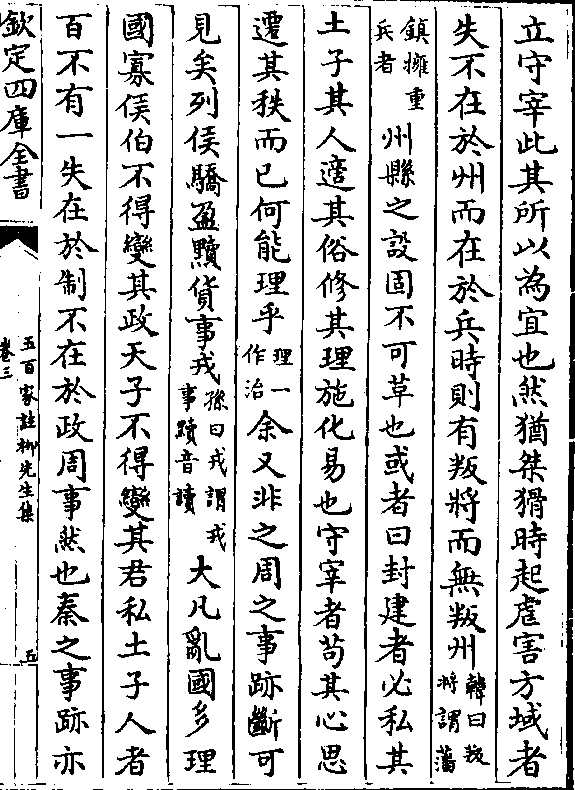 立守宰此其所以為宜也然猶桀猾時起虐害方域者
失不在於州而在於兵時則有叛將而無叛州韓曰叛將謂藩
鎮擁重兵者州縣之設固不可草也或者曰封建者必私其
土子其人適其俗修其理施化易也守宰者苟其心思
遷其秩而已何能理乎理一作治余又非之周之事跡斷可
見矣列侯驕盈黷貨事戎孫曰戎謂戎事黷音讀大凡亂國多理
國寡侯伯不得變其政天子不得變其君私土子人者
百不有一失在於制不在於政周事然也秦之事跡亦
欽定四庫全書
五百家註柳先生集
卷三
五